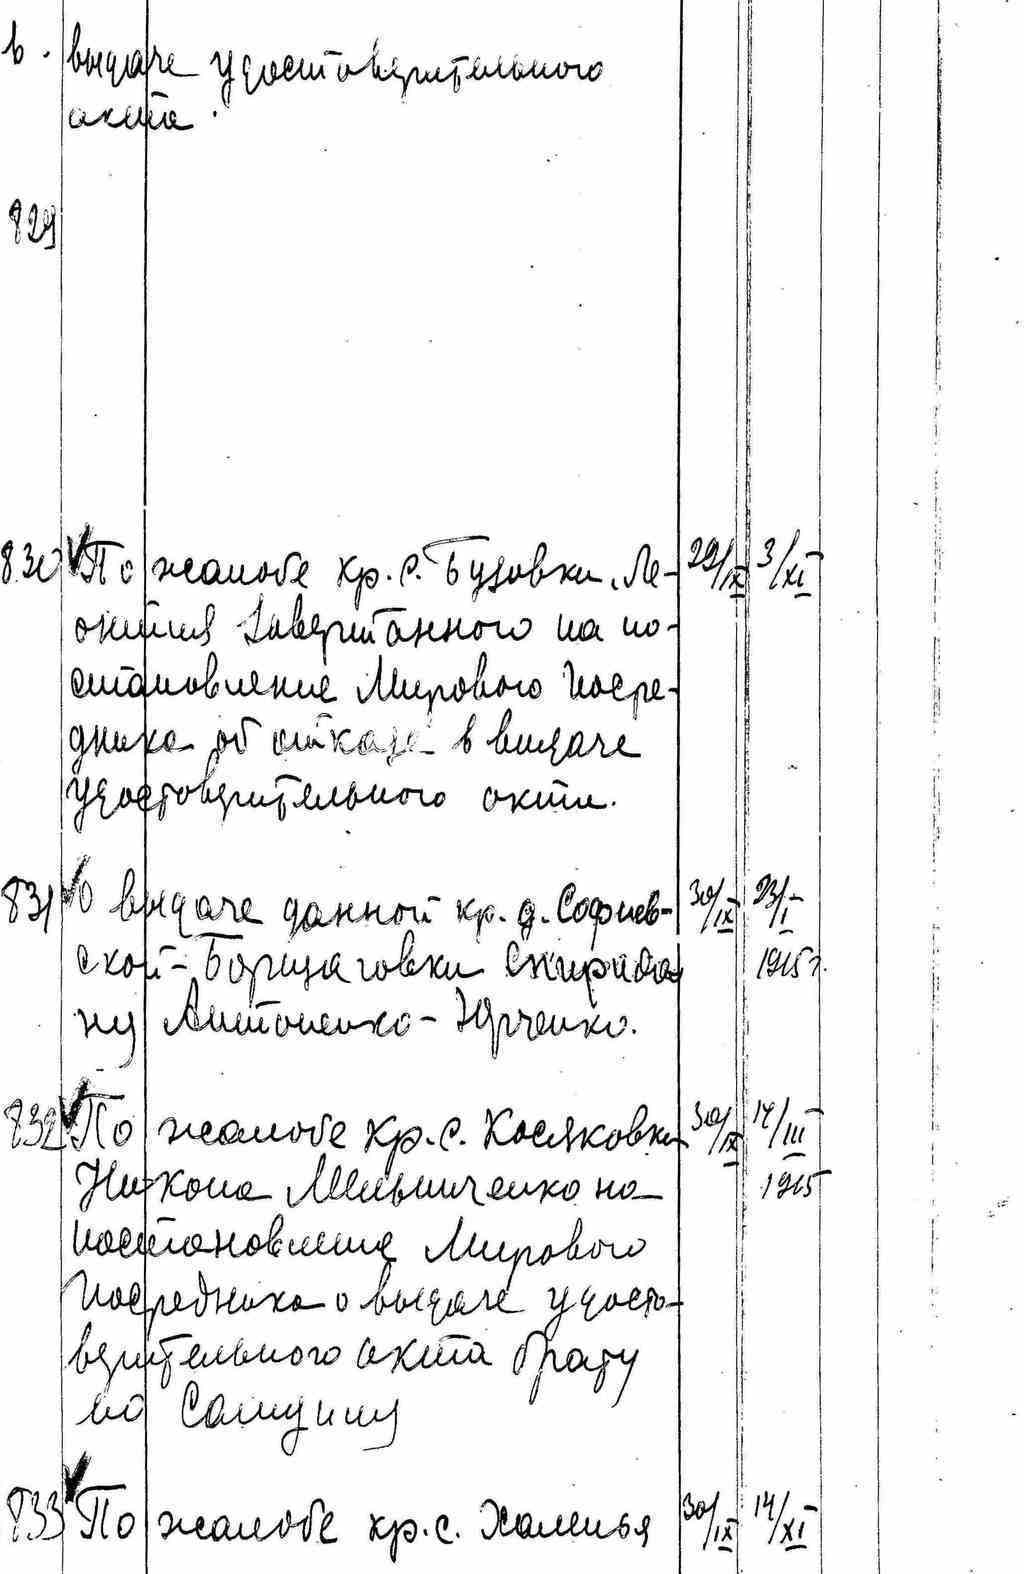 в. выдаче удостоверительного
акта.
829
830 По жалобе кр. с. Бузовки, Ле- 29/IX 3/XI
онтия на по-
становление Мирового Посре-
дника об отказе в выдаче
удостоверительного акта.
831 О выдаче данной кр. д. Софиев- 30/IX 23/I
ской-Борщаговки Спиридо- 1915 г.
ну Антоненко-Юрченко.
832 По жалобе кр. с. Косяковки 30/IX 14/III
Никона Мельниченко на 1915
постановление Мирового
Посредника о выдаче удосто-
верительного акта брату
его
833 По жалобе кр. с. Халепья 30/IX 14/XI